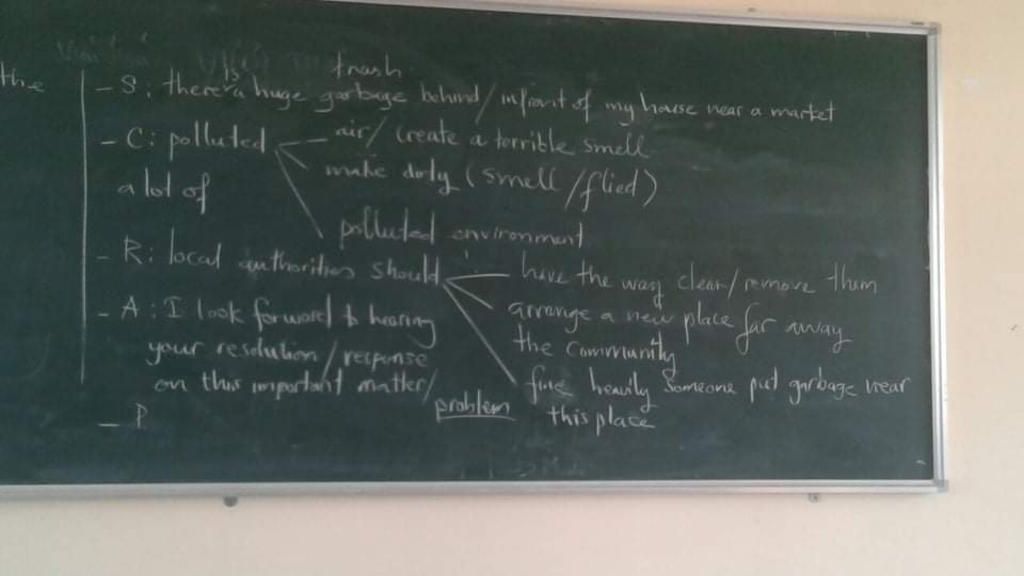 the
is trash
- S: there a huge garbage behind/ infront of my house near a market
- C: polluted air/ create a terrible smell
a lot of make dirty (smell/flied)
polluted environment
- R: local authorities should have the way clear/remove them
- A: I look forward to hearing arrange a new place far away
your resolution/response the community
on this important matter/ fine heavily someone put garbage near
problem this place
- P